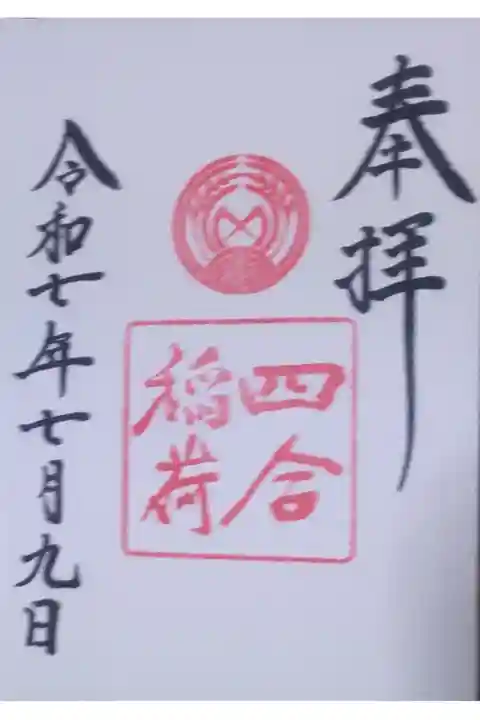 奉拝
四合
稲荷
令和七年七月九日